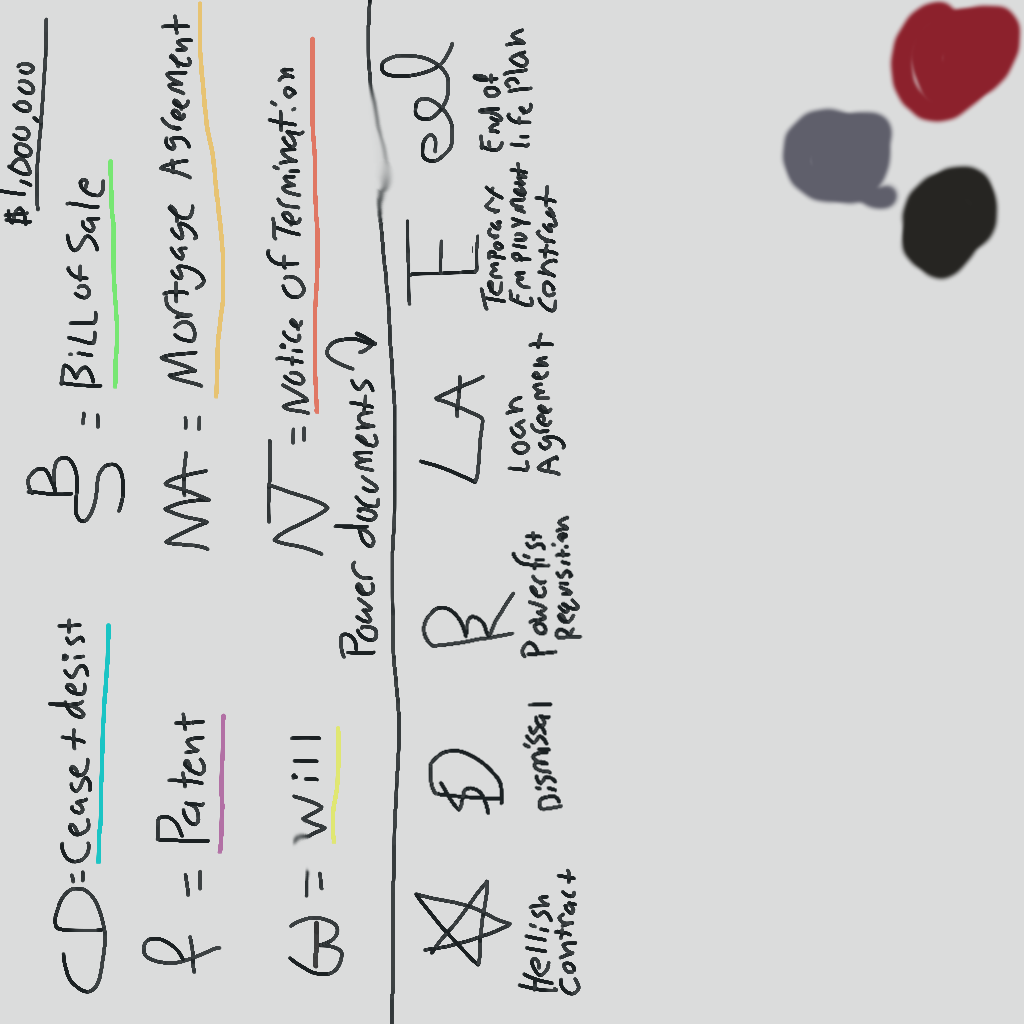 $1,000,000
CD = Cease + desist
BS = Bill of Sale
P = Patent
MA = Mortgage Agreement
= Will
NT = Notice of Termination
Power documents
D R LA TE eol
Hellish
Contract
Dismissal
Powerfist
Requisition
Loan
Agreement
Temporary
Employment
Contract
End of
life Plan